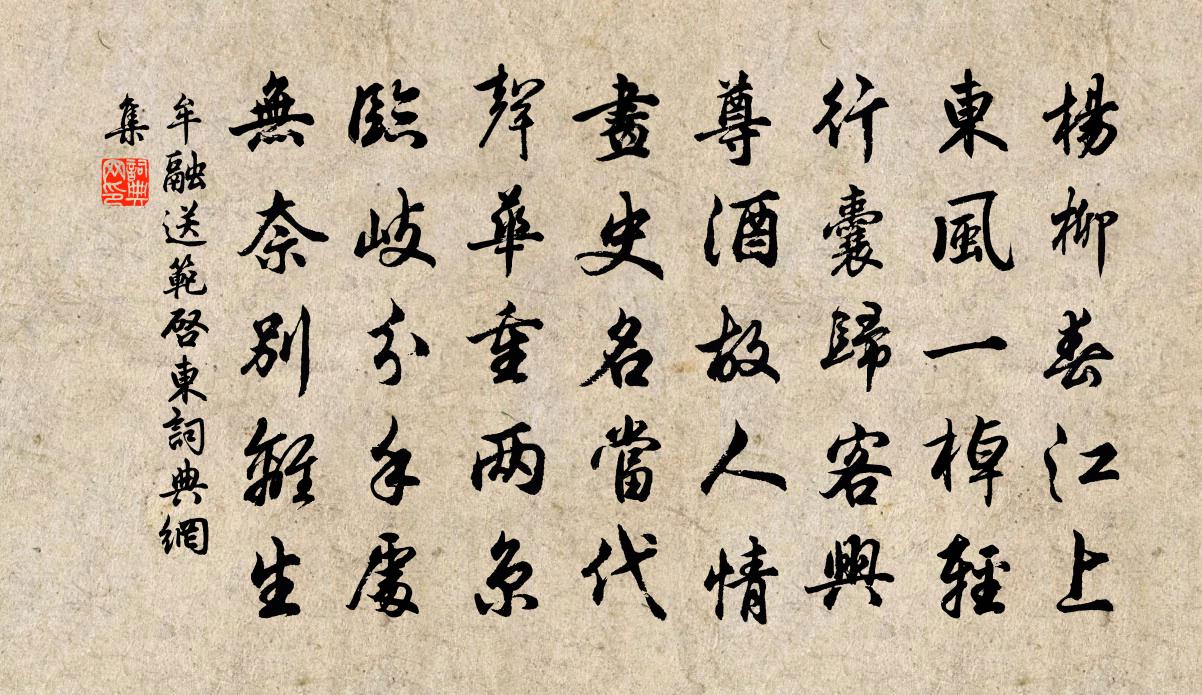 楊柳春江上
東風一棹輕
行囊歸客興
尊酒故人情
畫史名當代
聲華重两京
臨岐分手處
無奈別離生
牟融送範啓東詞典網
集
詞典网印